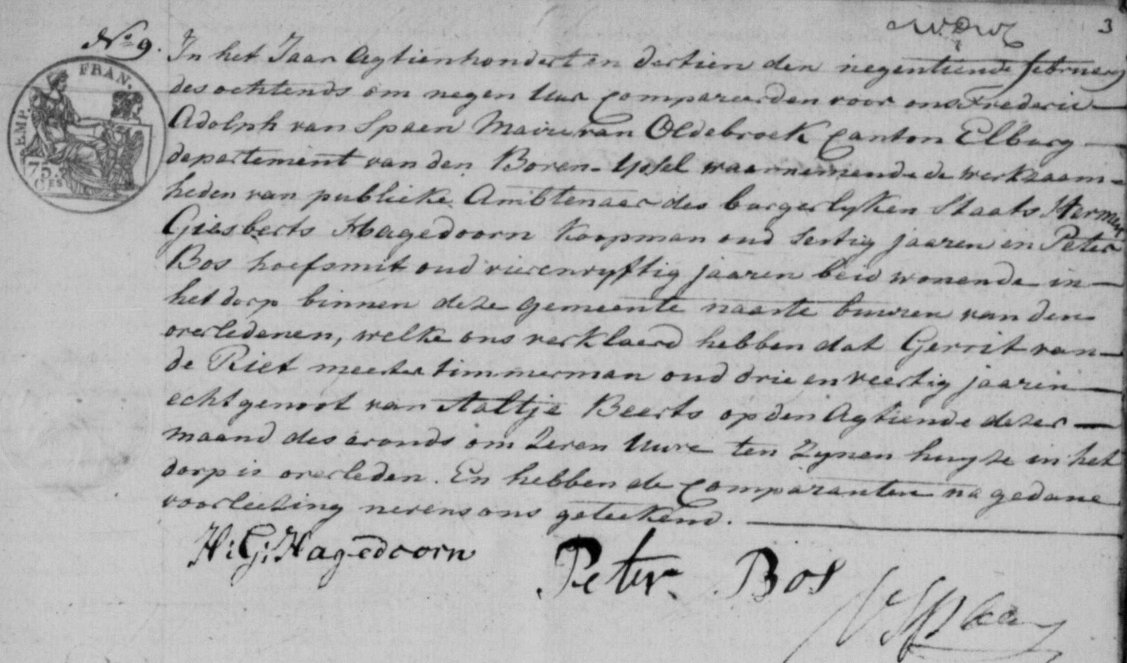 3
No 9.
EMP. FRAN.
75.
CES
In het Jaar Agtienhondert en dertien den negentiende februarij
des ochtends om negen Uur Compareerden voor ons Frederic
Adolph van Spaen Maire van Oldebroek Canton Elburg
departement van den Boven-Yssel waarnemende de werkzaam-
heden van publieke Ambtenaar des burgerlyken Staats Harmen
Giesberts Hagedoorn Koopman oud sestig jaaren en Peter
Bos hoefsmit oud vierenvyftig jaaren beid wonende in
het dorp binnen deze gemeente naaste buuren van den
overledenen, welke ons verklaard hebben dat Gerrit van
de Riet meester timmerman oud drie en veertig jaaren
echtgenoot van Aaltje Beerts op den Agtiende dezer
maand des avonds om Zeven Uure ten Zynen huyze in het
dorp is overleden. En hebben de Comparanten na gedane
voorleezing nevens ons geteekend.
H: G: Hagedoorn
Peter Bos